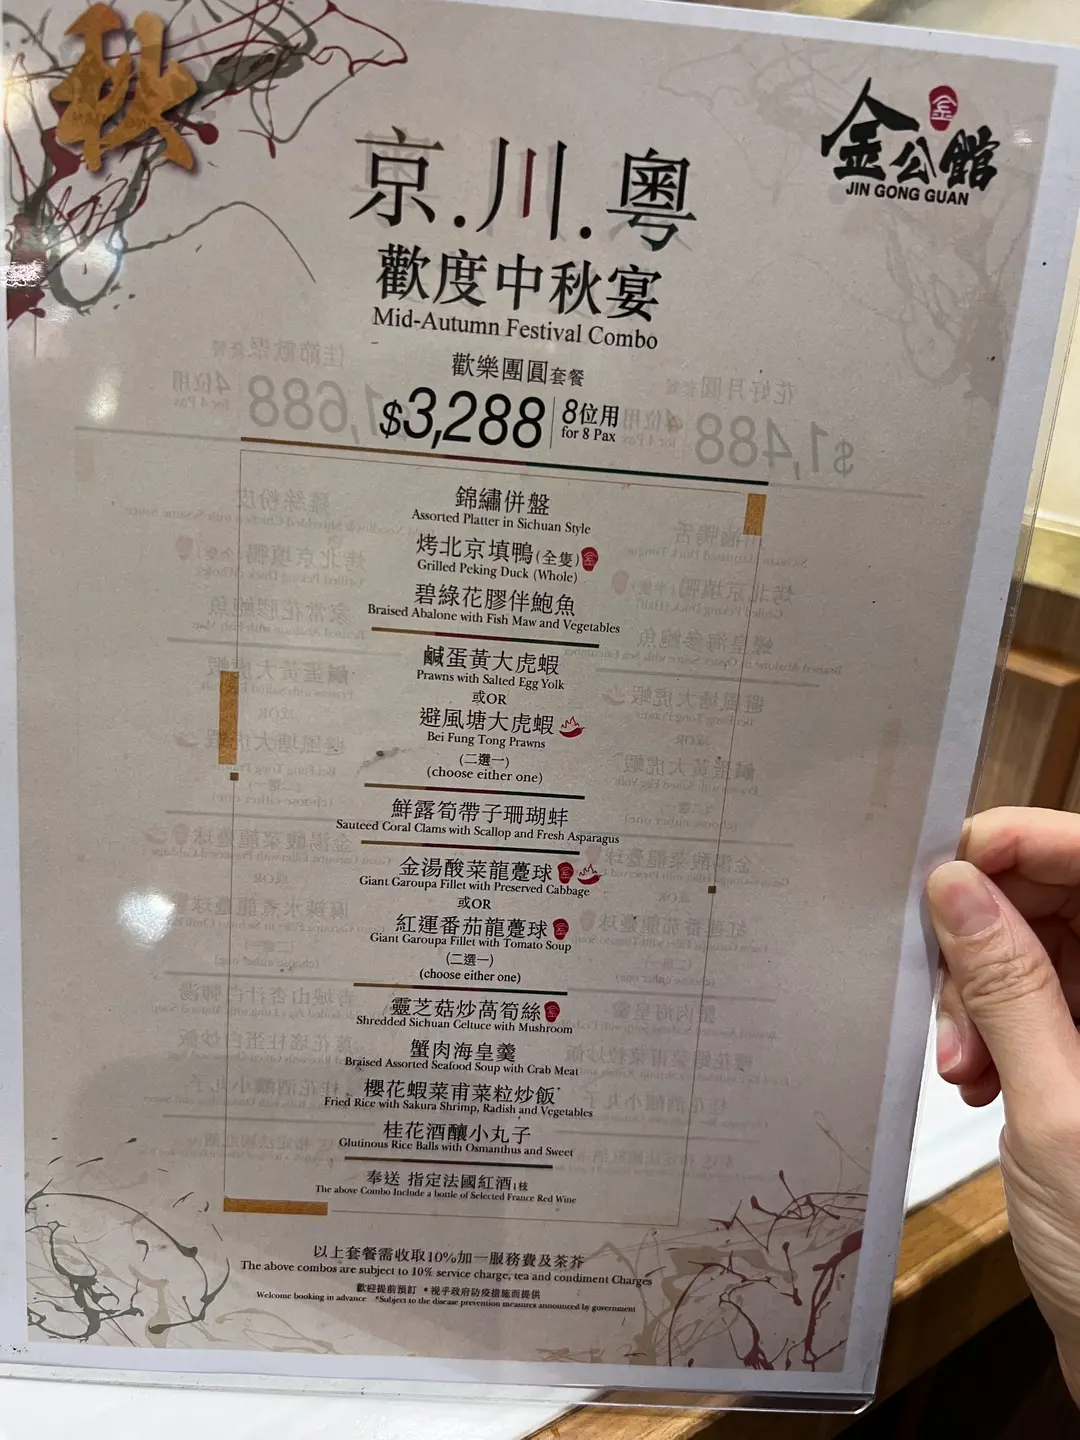 秋
金公館
JIN GONG GUAN
京.川.粵
歡度中秋宴
Mid-Autumn Festival Combo
歡樂團圓套餐
$3,288 8位用
for 8 Pax
錦繡併盤
Assorted Platter in Sichuan Style
烤北京填鴨(全隻)
Grilled Peking Duck (Whole)
碧綠花膠伴鮑魚
Braised Abalone with Fish Maw and Vegetables
鹹蛋黃大虎蝦
Prawns with Salted Egg Yolk
或OR
避風塘大虎蝦
Bei Fung Tong Prawns
(二選一)
(choose either one)
鮮露筍帶子珊瑚蚌
Sauteed Coral Clams with Scallop and Fresh Asparagus
金湯酸菜龍躉球
Giant Garoupa Fillet with Preserved Cabbage
或OR
紅運番茄龍躉球
Giant Garoupa Fillet with Tomato Soup
(二選一)
(choose either one)
靈芝菇炒萵筍絲
Shredded Sichuan Celtuce with Mushroom
蟹肉海皇羹
Braised Assorted Seafood Soup with Crab Meat
櫻花蝦菜甫菜粒炒飯
Fried Rice with Sakura Shrimp, Radish and Vegetables
桂花酒釀小丸子
Glutinous Rice Balls with Osmanthus and Sweet
奉送 指定法國紅酒1枝
The above Combo Include a bottle of Selected France Red Wine
以上套餐需收取10%加一服務費及茶芥
The above combos are subject to 10% service charge, tea and condiment Charges
歡迎提前預訂 *視乎政府防疫措施而提供
Welcome booking in advance *Subject to the disease prevention measures announced by government